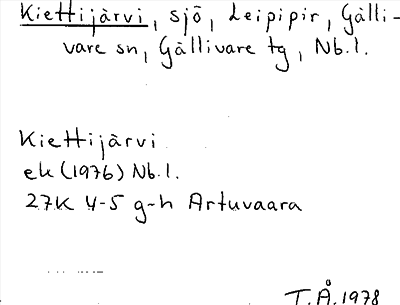 Kiettijärvi, sjö, Leipipir, Gälli-
vare sn, Gällivare tg, Nb.l.
Kiettijärvi
ek (1976) Nb.l.
27K 4-5 g-h Artuvaara
T.Å. 1978